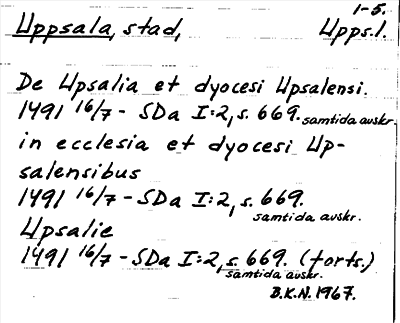 1-5.
Uppsala, stad, Upps.l.
De Upsalia et dyocesi Upsalensi.
1491 16/7 - SDa I:2, s. 669. samtida avskr.
in ecclesia et dyocesi Up-
salensibus
1491 16/7 - SDa I:2, s. 669.
samtida avskr.
Upsalie
1491 16/7 - SDa I:2, s. 669. (forts.)
samtida avskr.
B.K.N. 1967.